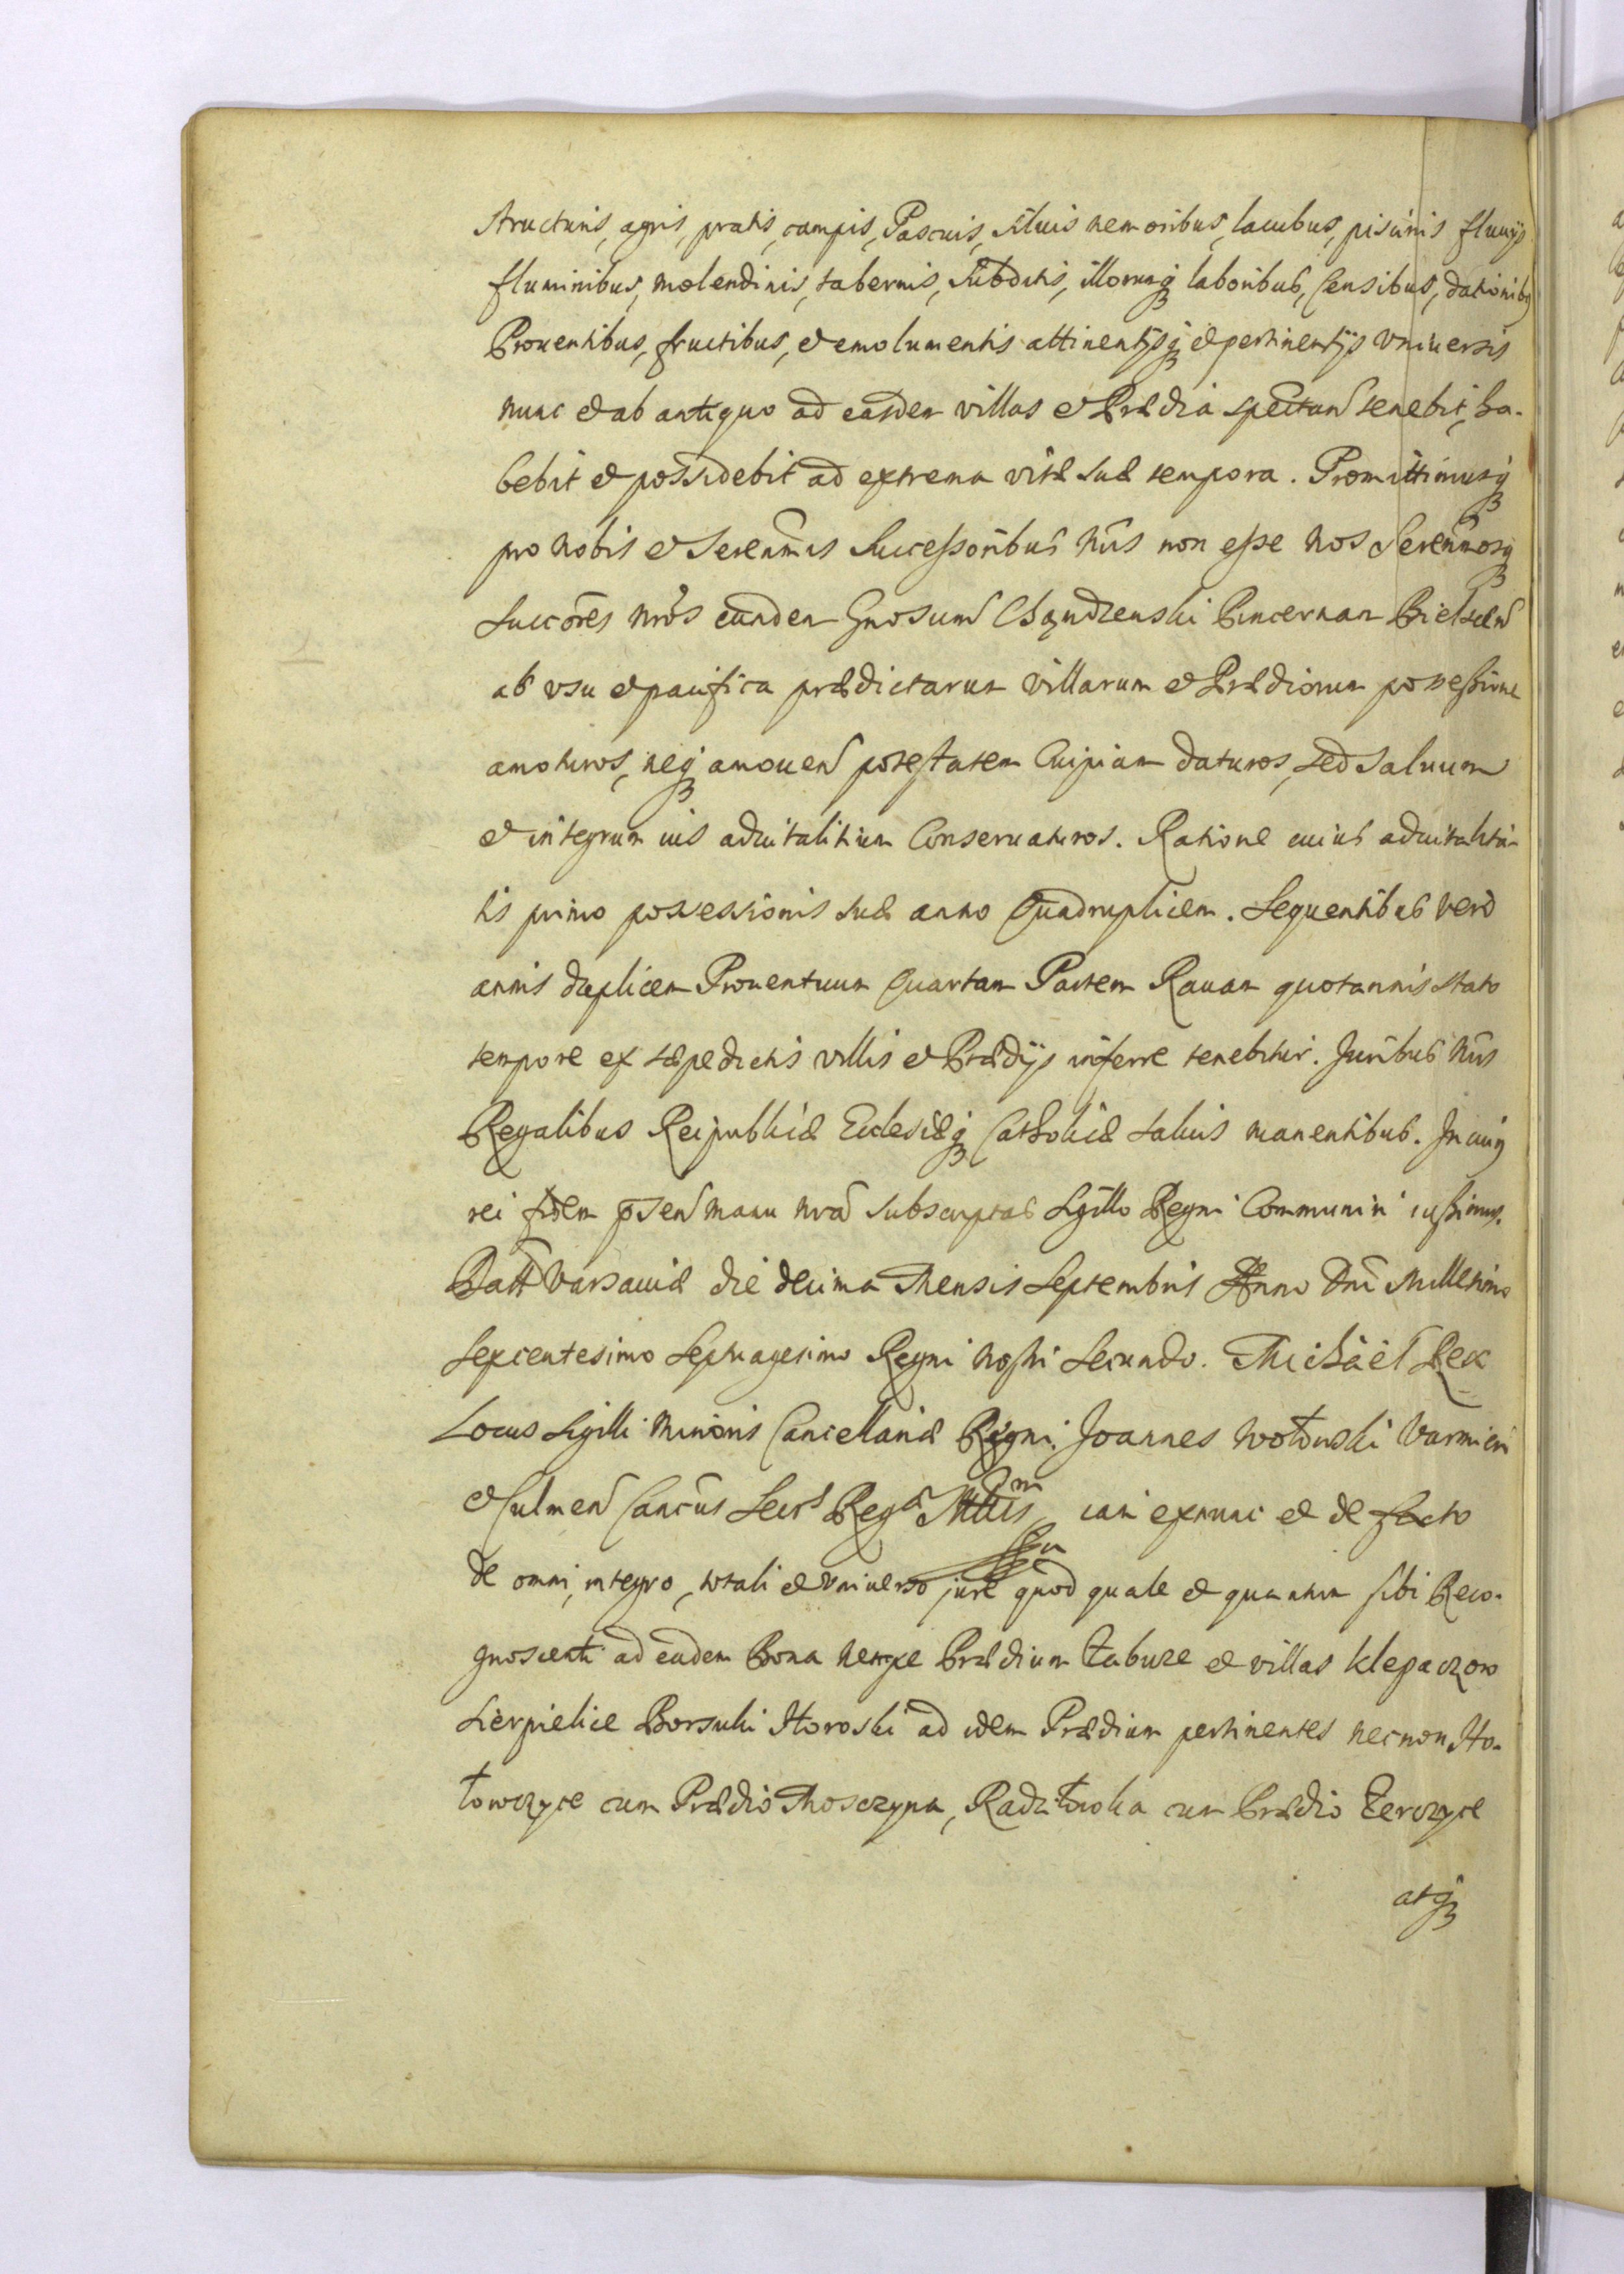 structuris, agris, pratis, campis, Pascuis, siluis nemoribus, lacubus, piscinis fluuijs
fluminibus, molendinis, tabernis, subditis, illorumq laboribus, Censibus, dationibq
Prouentibus, fructibus, et emolumentis attinentijsq et pertinentijs vniuersis
nunc et ab antiquo ad easdem villas et Prædia spectan tenebit, ha-
bebit et possidebit ad extrema vitæ suæ tempora. Promittimusq
pro nobis et Serenmis Successoribus nris non esse nos Serenmosq
Succores nros eundem Gnosum Chądzenski Pincernam Bielscen
ab vsu et pacifica prædictarum villarum et Prædiorum possessione
amoturos, neq amouen potestatem Cuipiam daturos, sed saluum
et integrum ius aduitalitium Conseruaturos. Ratione cuius aduitalita-
tis primo possessionis suæ anno Quadruplicem. Sequentibus verò
annis duplicem Prouentuum Quartam Partem Rauam quotannis stato
tempore ex sæpedictis villis et Prædijs inferre tenebitur. Juribus nris
Regalibus Reipublicæ Ecclesiæq Catholicæ saluis manentibus. In cuiq
rei fidem psen manu nra subscriptas Sigillo Regni Communiri iussimus.
Datt Varsauiæ die decima Mensis Septembris Anno Dni Millesimo
Sexcentesimo Septuagesimo Regni nostri Secundo. Michaël Rex
Locus Sigilli minoris Cancellariæ Regni. Joannes Wołowski Varmien
et Culmen Cancus Secrs Rega Mttis iam exnunc et de facto
de omni, integro, totali et vniuerso jure quod quale et quantum sibi Reco-
gnoscenti ad eadem Bona nempe Prædium Łabuze et villas Klepaczow
Sierpielice Borsuki Horoski ad idem Prædium pertinentes necnon Ho-
łowczyce cum Prædio Mosczyna, Radziłowka cum Prædio Zerczyce
atq